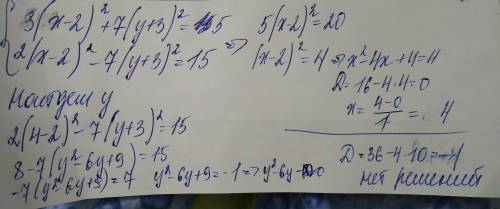 3(x-2)²+7(y+3)²=5 5(x-2)²=20
2(x-2)²-7(y+3)²=15 => (x-2)²=4 => x²-4x+4=4
D=16-4·4=0
Найдем y x=(4-0)/1=4
2(4-2)²-7(y+3)²=15
8-7(y²-6y+9)=15 D=36-4·10=-4
-7(y²-6y+9)=7 y²-6y+9=-1=>y²-6y 0=0 нет решений